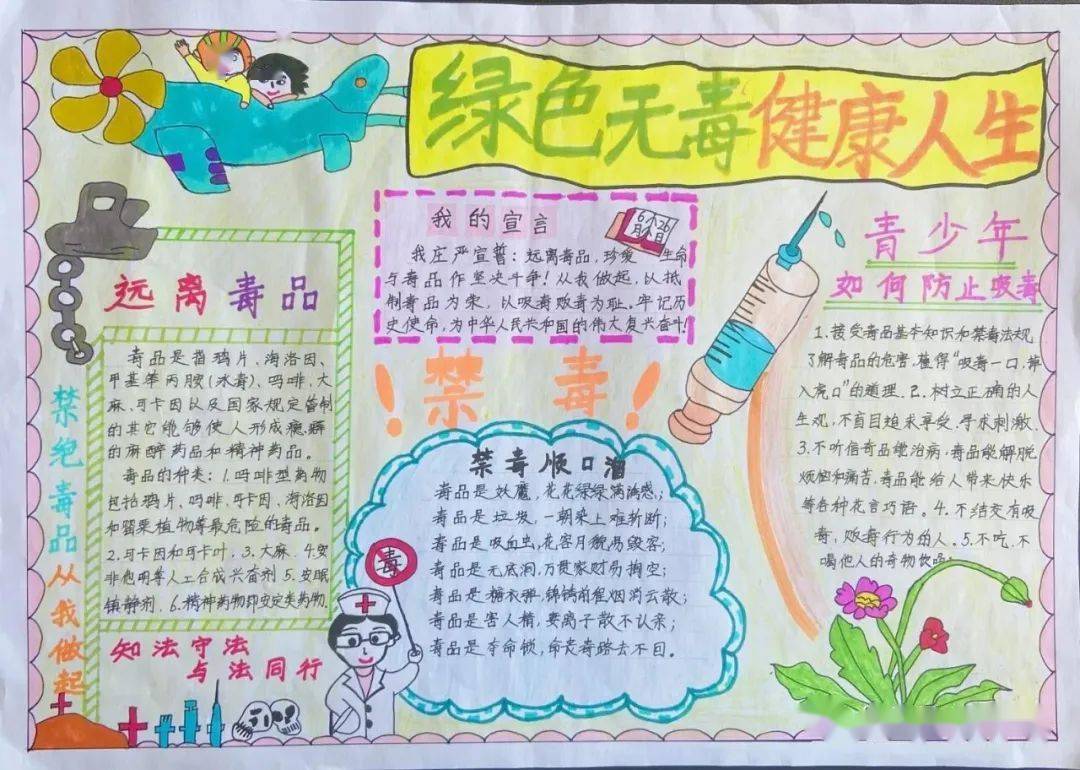 绿色无毒健康人生
我的宣言
6月26日
我庄严宣誓：远离毒品，珍爱生命
与毒品作坚决斗争！从我做起，以抵
制毒品为荣，以吸毒贩毒为耻。牢记历
史使命，为中华人民共和国的伟大复兴奋斗！
远离毒品
毒品是指鸦片、海洛因、
甲基苯丙胺(冰毒)、吗啡、大
麻、可卡因以及国家规定管制
的其它能够使人形成瘾癖
的麻醉药品和精神药品。
毒品的种类：1.吗啡型药物
包括鸦片、吗啡、可卡因、海洛因
和罂粟植物等最危险的毒品。
2.可卡因和可卡叶，3.大麻．4.安
非他明等人工合成兴奋剂 5.安眠
镇静剂．6.精神药物即安定类药物．
禁绝毒品从我做起
知法守法
与法同行
！禁毒！
禁毒顺口溜
毒品是妖魔，花花绿绿满诱惑；
毒品是垃圾，一朝染上难折断；
毒品是吸血虫，花容月貌易毁容；
毒品是无底洞，万贯家财易掏空；
毒品是糖衣弹，锦锈前程烟消云散；
毒品是害人精，妻离子散不认亲；
毒品是夺命锁，命丧毒路去不回。
毒
青少年
如何防止吸毒
1、接受毒品基本知识和禁毒法规，
了解毒品的危害，懂得“吸毒一口，掉
入虎口”的道理．2．树立正确的人
生观，不盲目追求享受、寻求刺激．
3.不听信毒品能治病，毒品能解脱
烦恼和痛苦，毒品能给人带来快乐
等各种花言巧语。4．不结交有吸
毒，贩毒行为的人．5.不吃、不
喝他人的毒物饮